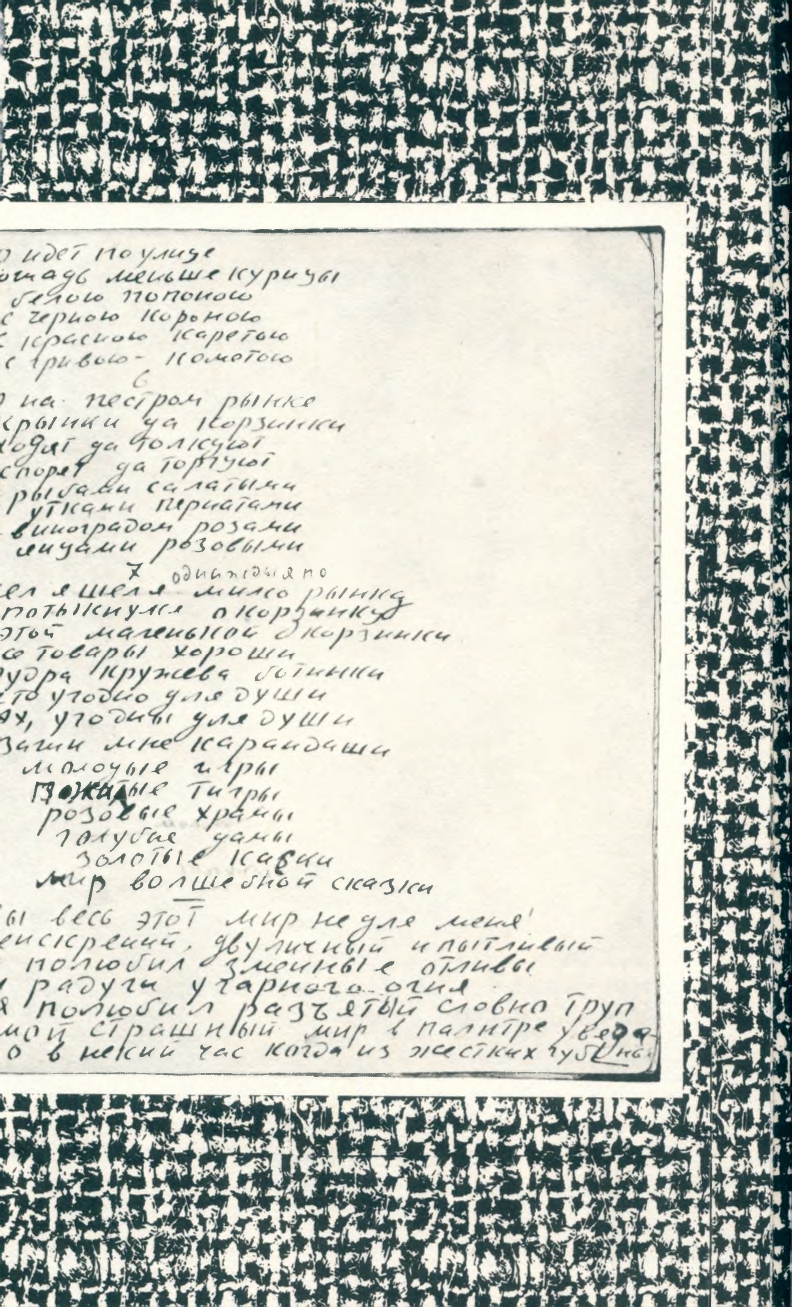 о идет по улице
ошадь меньше курицы
белою попоною
с черною короною
с красною каретою
с гривою - кометою
6
о на пестром рынке
крынки да корзинки
ходят да толкуют
спорет да торгуют
рыбами салатыми
утками пернатыми
виноградом розами
лицами розовыми
7 однижды я по
шел я мимо рынка
потыкнулся о корзинку
этой маленькой о корзинки
се товары хороши
пудра кружева ботинки
что угодно для души
Ах, угодны для души
зачин мне карандаши
молодые игры
пожитые тигры
розовые храмы
голубые дамы
золотые каски
мир волшебной сказки
ы весь этот мир не для меня!
еискрений, двуличный и пытливый
полюбил змеиные отливы
и радуги угарного огня
я полюбил разъятый словно труп
мой страшный мир в палитре уведа-
о в некий час когда из жестких губ